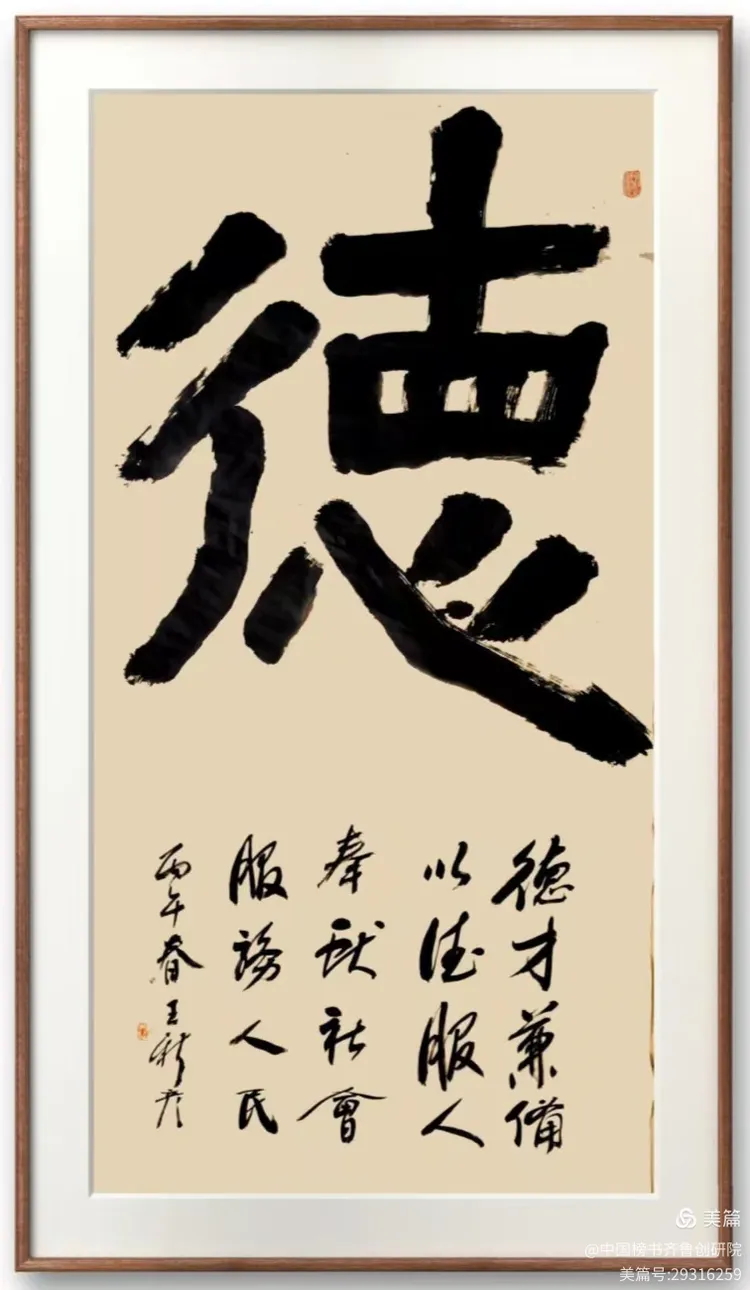 德
德才兼備
以德服人
奉献社會
服務人民
丙午春王新彦
美篇
@中国榜书齐鲁创研院
美篇号:29316259